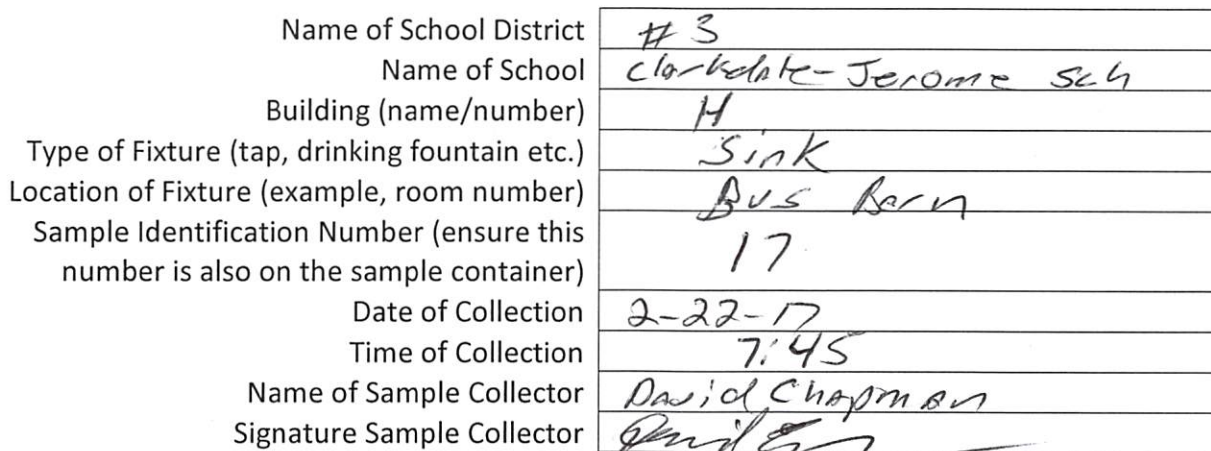 Name of School District # 3
Name of School Clarkdale-Jerome Sch
Building (name/number) H
Type of Fixture (tap, drinking fountain etc.) Sink
Location of Fixture (example, room number) Bus Barn
Sample Identification Number (ensure this
number is also on the sample container) 17
Date of Collection 2-22-17
Time of Collection 7:45
Name of Sample Collector David Chapman
Signature Sample Collector David